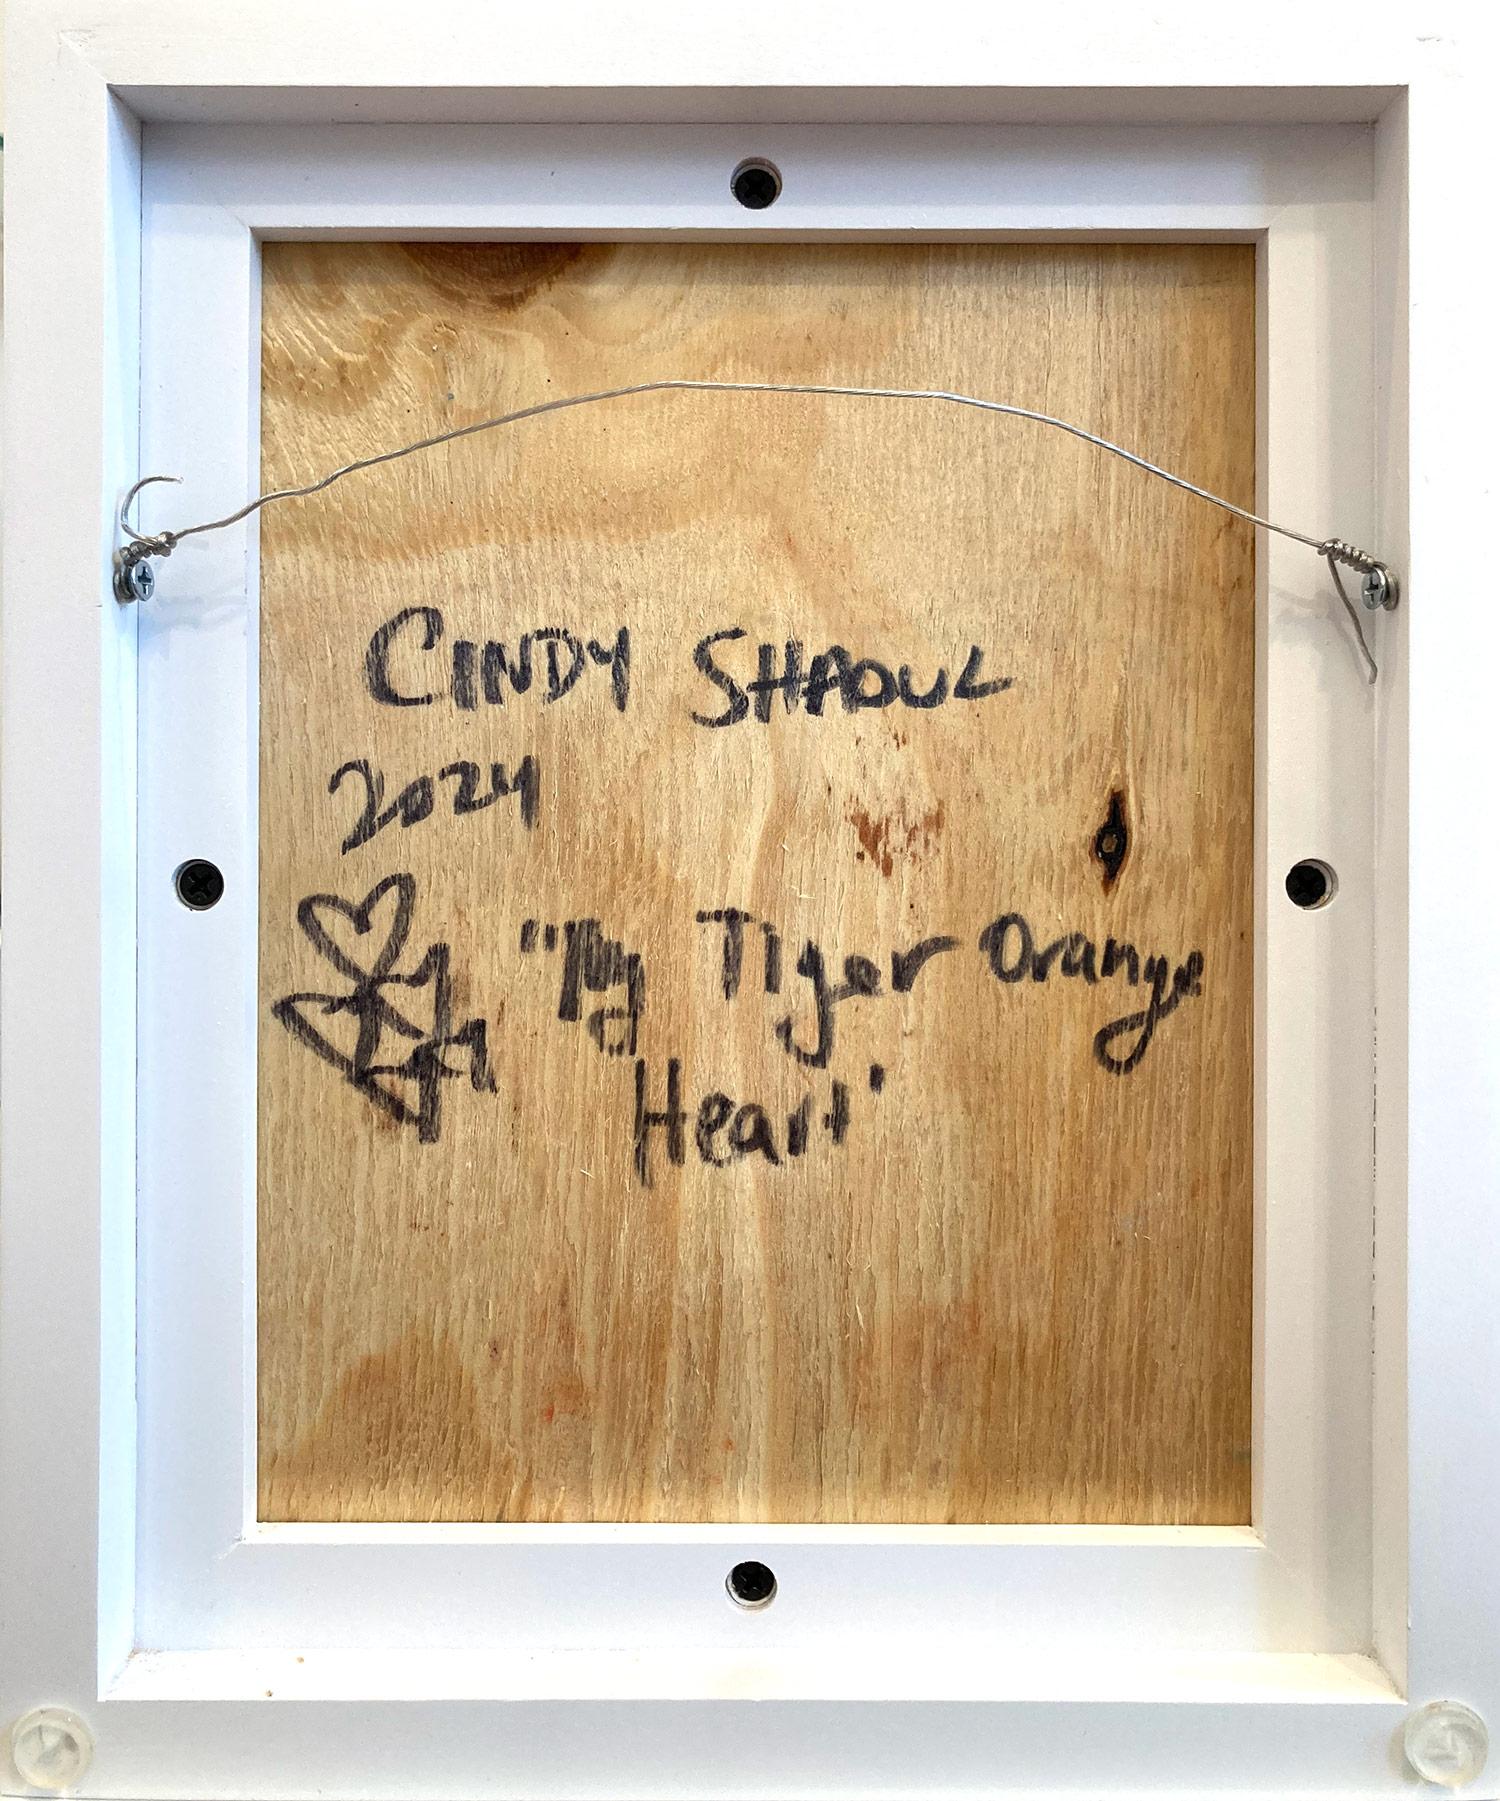 CINDY SHAOUL
2024
"My Tiger Orange
Heart"